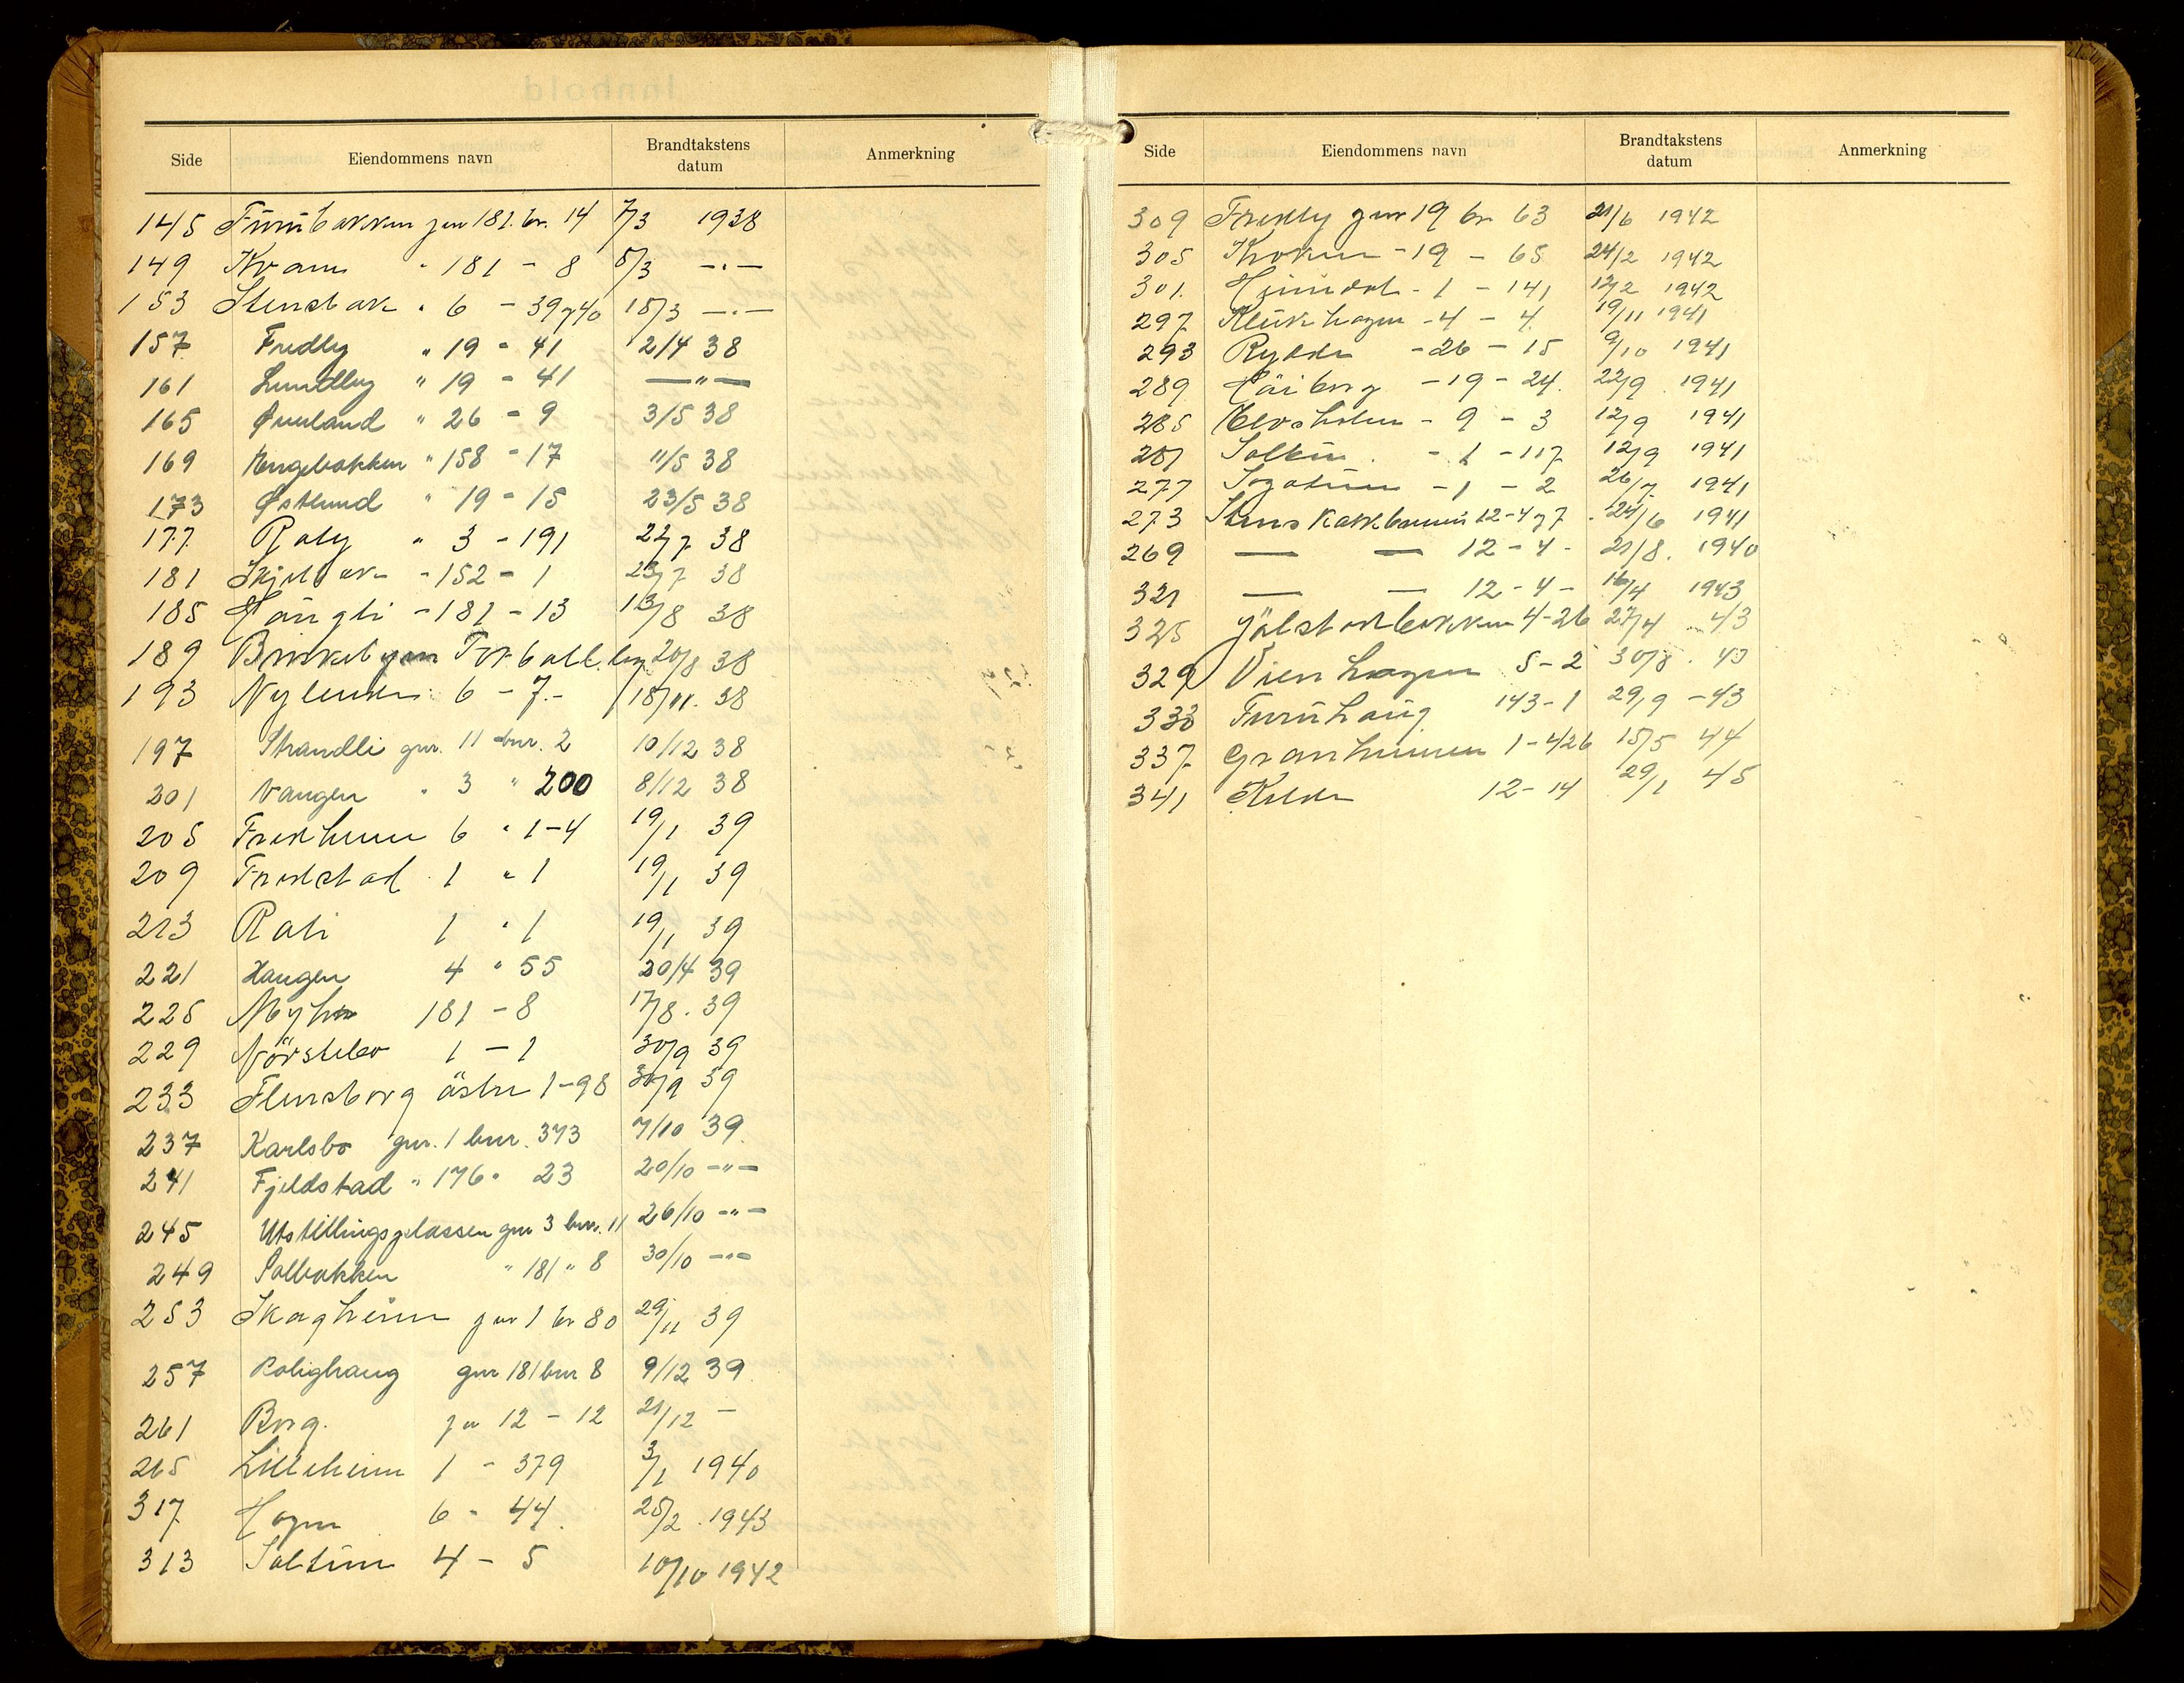 Side Eiendommens navn Brandtakstens datum Anmerkning
145 Furubakken gnr 181. br. 14 7/3 1938
149 Kvam " 181 - 8 8/3 -"-
153 Stensbak " 6 - 39 og 40 18/3 -"-
157 Fredly " 19 - 41 2/4 38
161 Lundby " 19 - 41 -"-
165 Øverland " 26 - 9 3/5 38
169 Engebakken " 158 - 17 11/5 38
173 Østlund " 19 - 15 23/5 38
177 Roly " 3 - 191 22/7 38
181 - 152 - 1 23/7 38
185 Haugli - 181 - 13 13/8 38
189 20/8 38
193 Nylende 6 - 7 - 18/11. 38
197 Strandli gnr. 11 bnr. 2 10/12 38
201 Vangen " 3 " 200 8/12 38
205 Fredheim 6 " 1-4 19/1 39
209 Fredstad 1 " 1 19/1 39
213 Roli 1 " 1 19/1 39
221 Haugen 4 " 55 20/4 39
225 181 - 8 17/8. 39
229 Nörstebo 1 - 1 30/9 39
233 Flensborg östre 1-98 30/9 39
237 Karlsbo gnr. 1 bnr. 373 7/10 39
241 Fjeldstad " 176 " 23 20/10 -"-
245 Utstillingsplassen gnr 3 bnr. 11 26/10 -"-
249 Solbakken " 181 " 8 30/10 -"-
253 Skogheim gnr 1 br 80 29/11 39
257 Rolighaug gnr 181 bnr 8 9/12 39
261 Borg. gn 12 - 12 21/12 -
265 Lilleheim 1 - 379 3/1 1940
317 Hagen 6 - 44. 25/2. 1943
313 Soltun 4 - 5 10/10 1942
Side Eiendommens navn Brandtakstens datum Anmerkning
309 Fredly gnr 19 br. 63 21/6 1942
305 Kroken - 19 - 65 24/2 1942
301. Heimdal - 1 - 141 12/2 1942
297 - 4 - 4. 19/11 1941
293 - 26 - 15 9/10 1941
289 Häiborg - 19 - 24. 22/9. 1941
285 - 9 - 3 12/9 1941
281 - 1 - 117 12/9 1941
277 - 1 - 2 26/7 1941
273 12-4 og 7 24/6 1941
269 — — 12 - 4 - 21/8. 1940
321 — — 12 - 4 - 16/4 1943
325 Jölstadbakken 4-26 27/4 43
329 Vienhagen 5-2 30/8. 43
333 Furuhaug 143-1 29/9 -43
337 Granheimen 1-426 15/5 44
341 Kilde 12-14 29/1 45